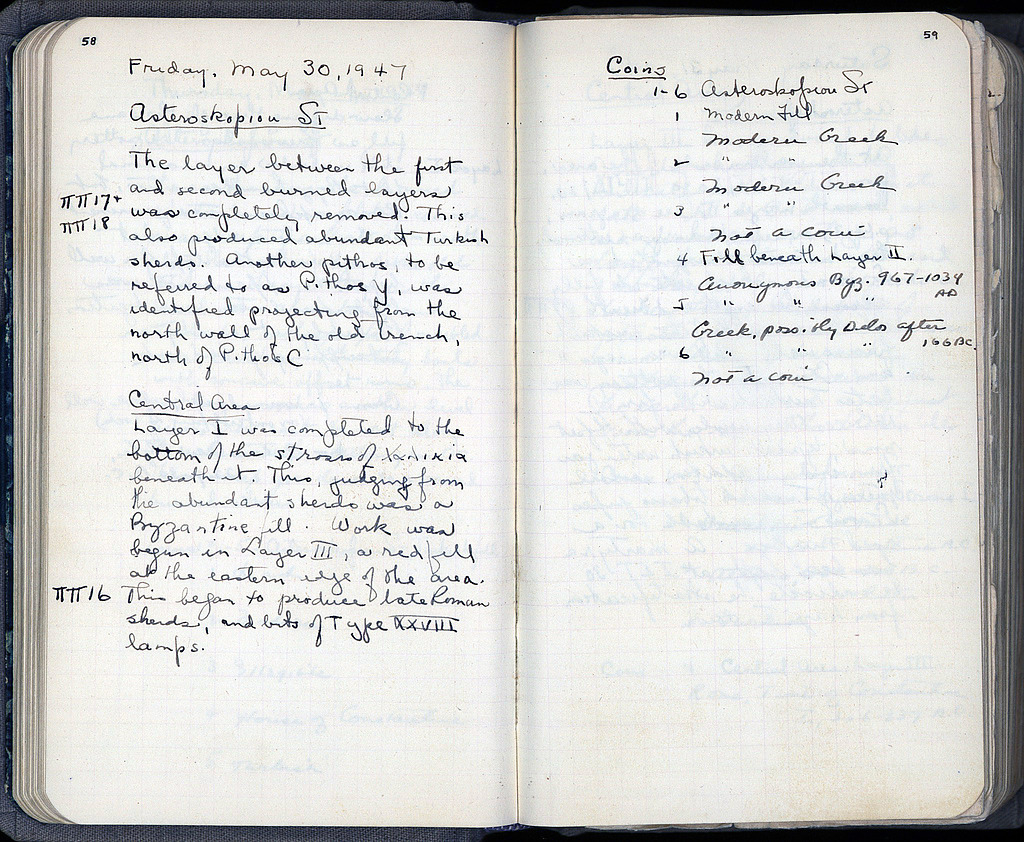 58
Friday, May 30, 1947
Asteroskopiou St
The layer between the first
and second burned layers
ΠΠ17+
was completely removed. This
ΠΠ18
also produced abundant Turkish
sherds. Another pithos, to be
referred to as Pithos Y, was
identified projecting from the
north wall of the old trench,
north of Pithos C
Central Area
Layer I was completed to the
bottom of the stroses of
beneath it. This, judging from
the abundant sherds was a
Byzantine fill. Work was
begun in Layer III, a red fill
at the eastern edge of the area.
ΠΠ16 This began to produce late Roman
sherds, and bits of Type XXVIII
lamps.
59
Coins
1-6 Asteroskopiou St
1 Modern Fill
Modern Greek
2 " "
Modern Greek
3 " "
Not a coin
4 Fill beneath Layer II.
Anonymous Byz. 967-1034
AD
5 " " "
Greek, possibly Delos after
166 BC.
6 " " "
Not a coin